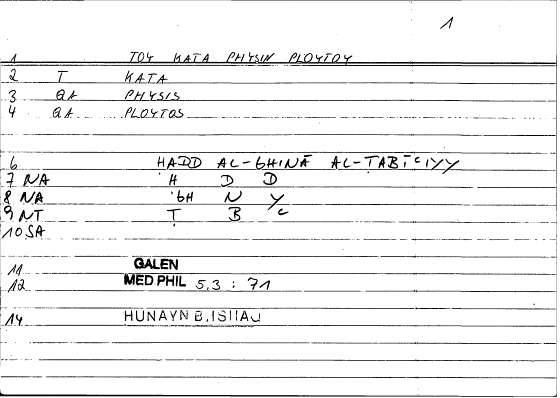 1
1 TOY KATA PHYSIN PLOYTOY
2 T KATA
3 QA PHYSIS
4 QA PLOYTOS
6 ḤADD AL-GHINĀ AL-ṬABĪCIYY
7 NA Ḥ D D
8 NA GH N Y
9 NT Ṭ B C
10 SA
11 GALEN
12 MED PHIL 5,3 : 71
14 HUNAYN B. ISHAQ